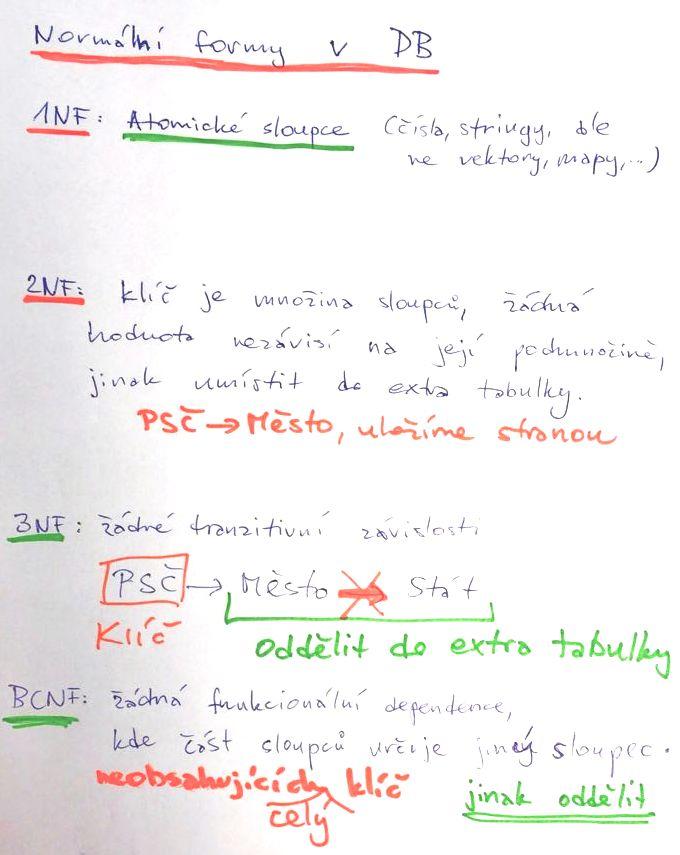 Normální formy v DB
1NF: Atomické sloupce (čísla, stringy, ale
ne vektory, mapy,...)
2NF: klíč je množina sloupců, žádná
hodnota nezávisí na její podmnožině,
jinak umístit do extra tabulky.
PSČ → Město, uložíme stranou
3NF: žádné tranzitivní závislosti
PSČ → Město → Stát
Klíč
oddělit do extra tabulky
BCNF: žádná funkcionální dependence,
kde část sloupců určuje jiný sloupec.
neobsahujících klíč
celý
jinak oddělit